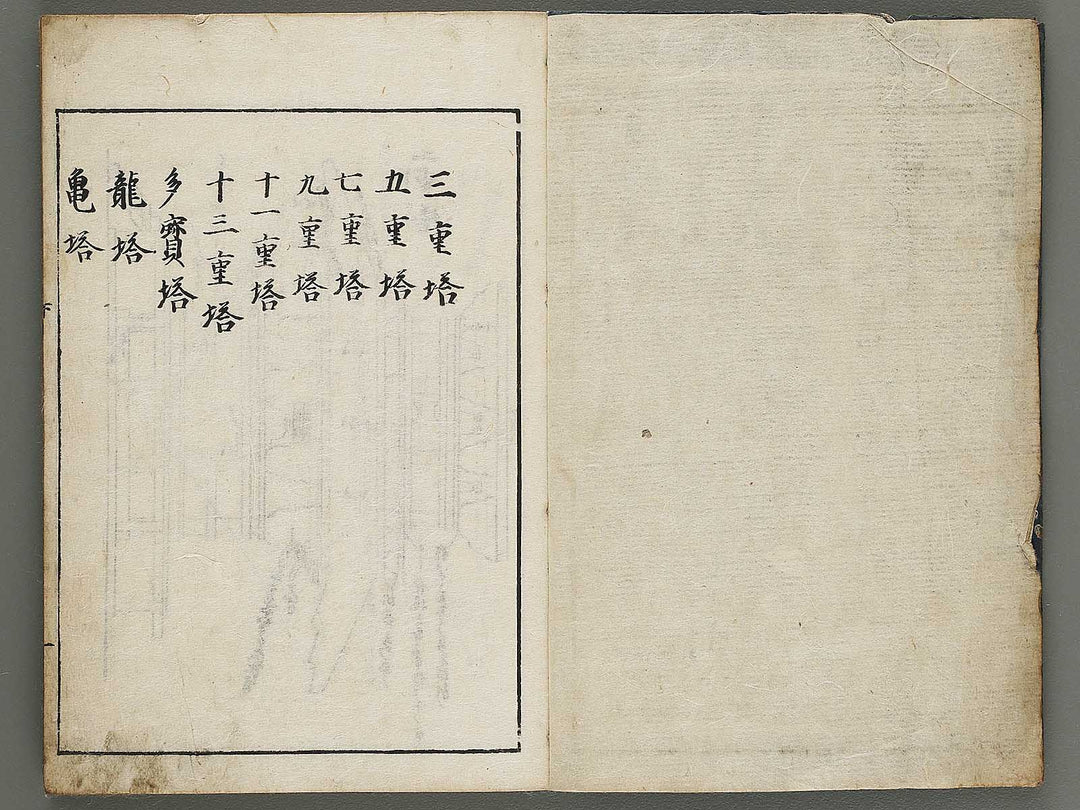 三重塔
五重塔
七重塔
九重塔
十一重塔
十三重塔
多寳塔
龍塔
亀塔